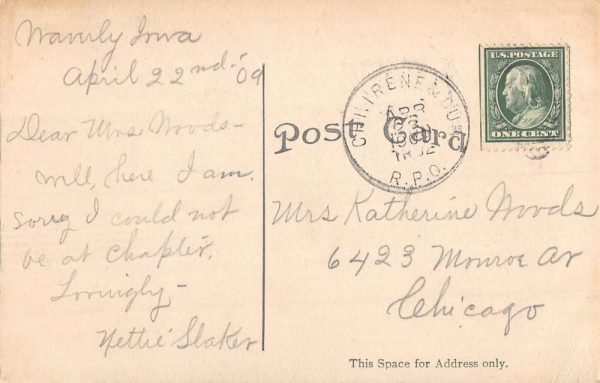 Waverly Iowa
April 22nd. '09
Dear Mrs Woods-
well, here I am.
sorry I could not
be at chapter.
Lovingly-
Nettie Slaker
Post Card
CHI. IRENE & DUB.
APR
1909
TR.32
R.P.O.
U.S. POSTAGE
ONE CENT
Mrs Katherine Woods
6423 Monroe Av
Chicago
This Space for Address only.